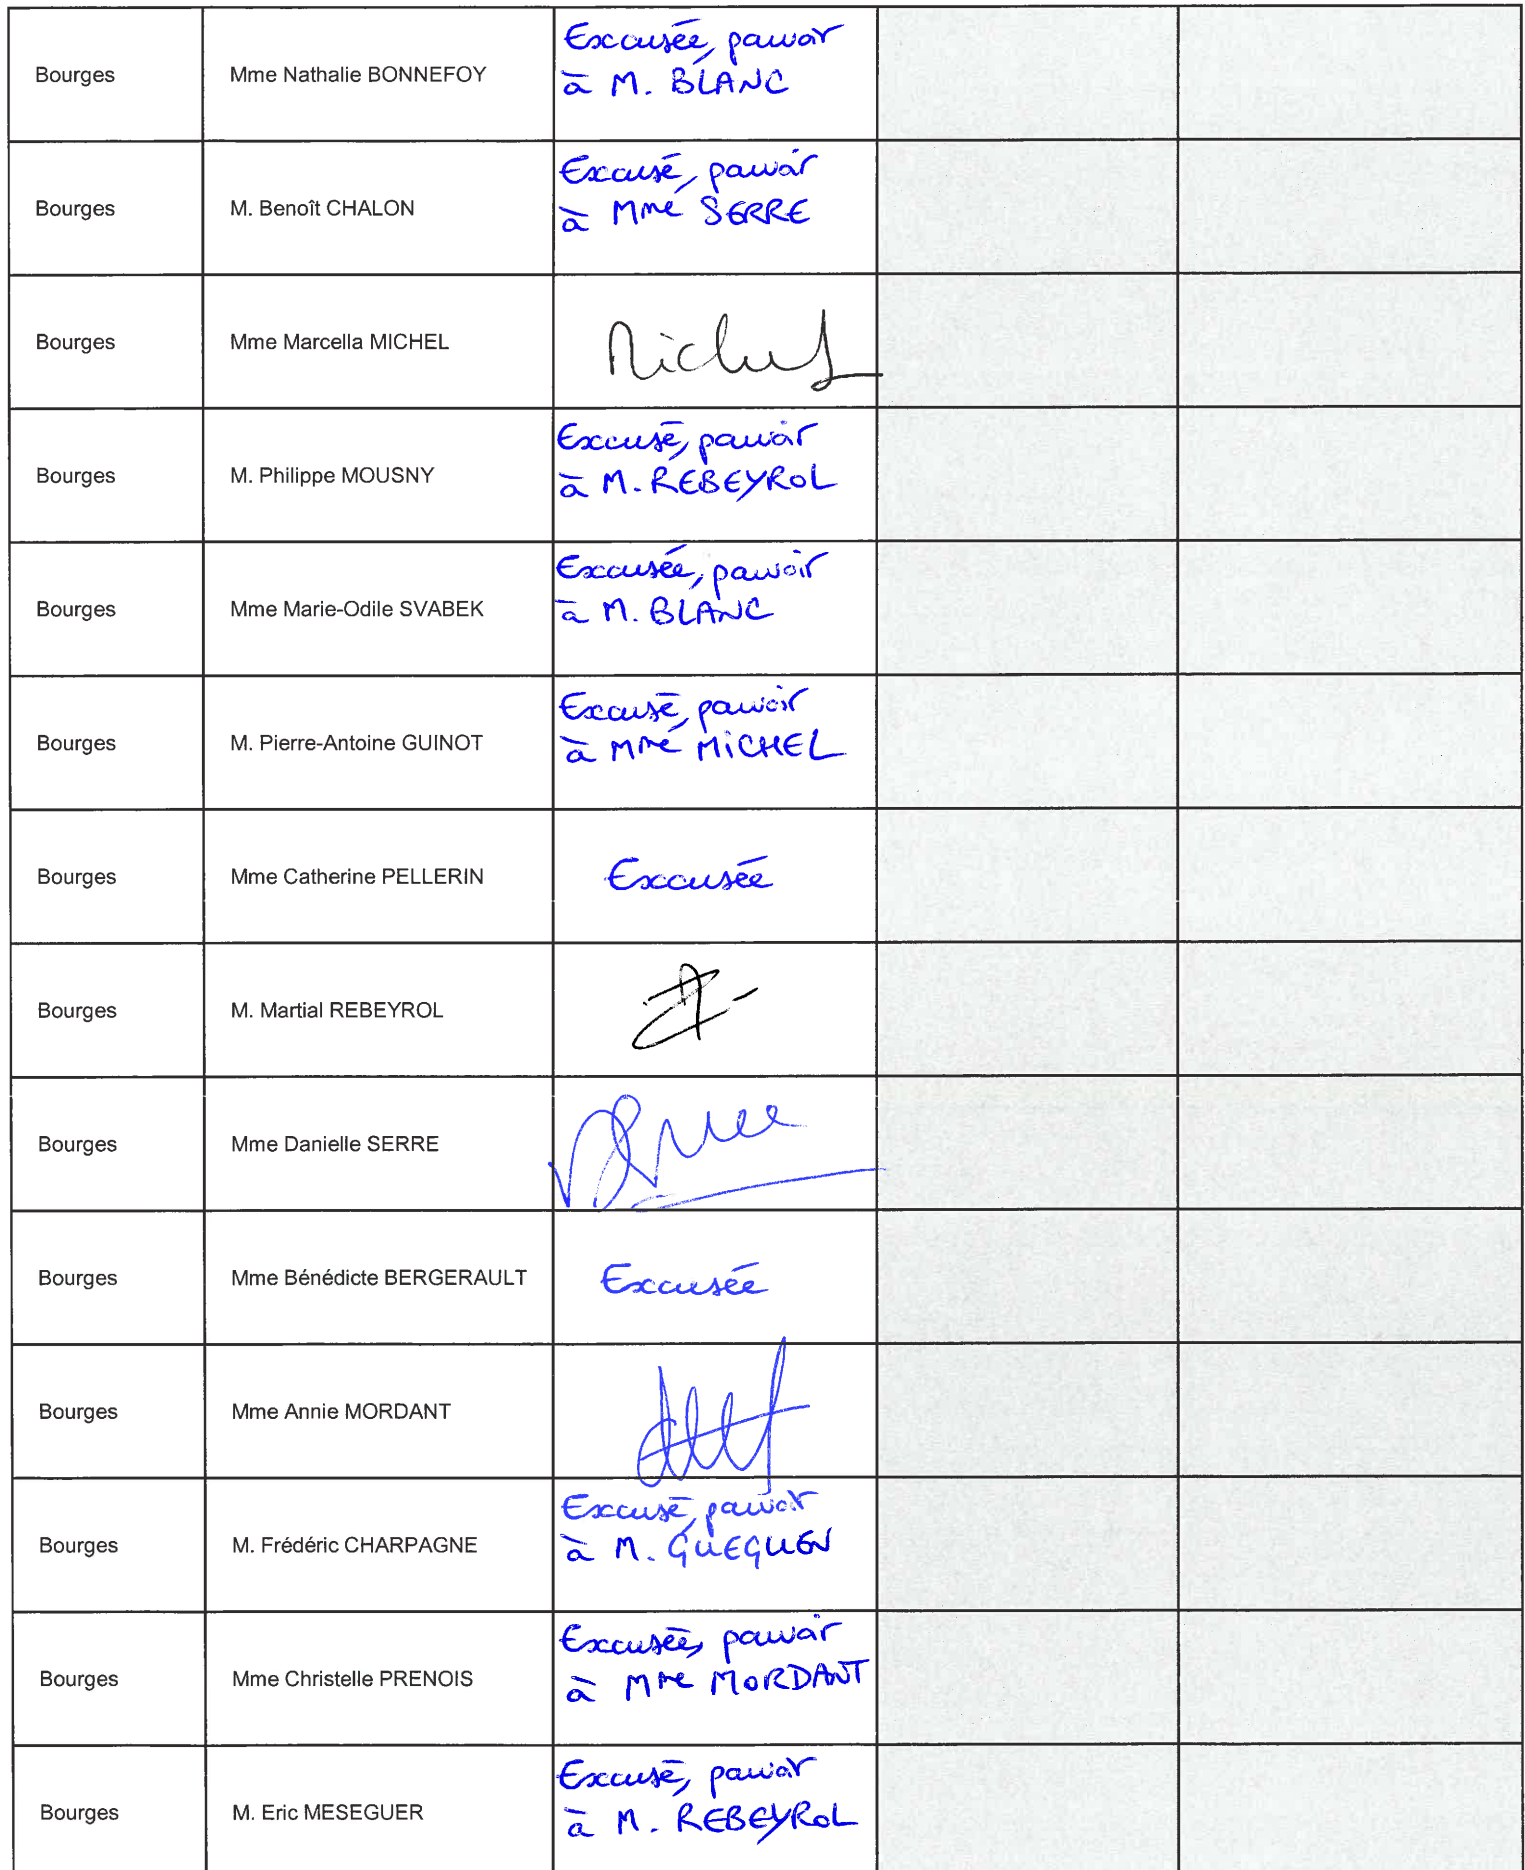 Bourges Mme Nathalie BONNEFOY Excusée, pouvoir
à M. BLANC
Bourges M. Benoît CHALON Excusé, pouvoir
à Mme SERRE
Bourges Mme Marcella MICHEL Michel
Bourges M. Philippe MOUSNY Excusé, pouvoir
à M. REBEYROL
Bourges Mme Marie-Odile SVABEK Excusée, pouvoir
à M. BLANC
Bourges M. Pierre-Antoine GUINOT Excusé, pouvoir
à Mme MICHEL
Bourges Mme Catherine PELLERIN Excusée
Bourges M. Martial REBEYROL
Bourges Mme Danielle SERRE
Bourges Mme Bénédicte BERGERAULT Excusée
Bourges Mme Annie MORDANT
Bourges M. Frédéric CHARPAGNE Excusé, pouvoir
à M. GUEGUEN
Bourges Mme Christelle PRENOIS Excusée, pouvoir
à Mme MORDANT
Bourges M. Eric MESEGUER Excusé, pouvoir
à M. REBEYROL